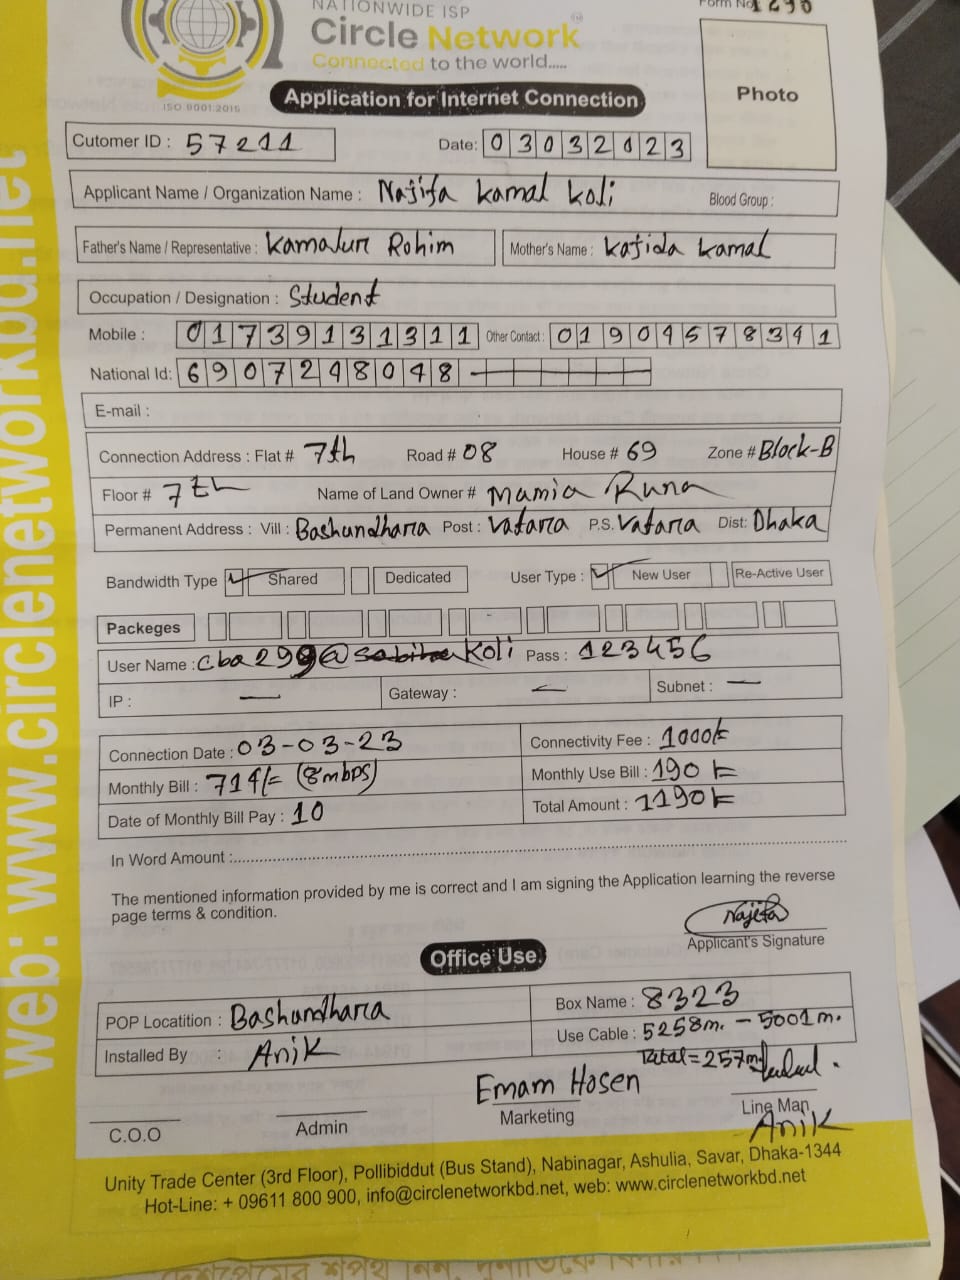 NATIONWIDE ISP
Circle Network
Connected to the world.....
ISO 9001:2015
Form No 1290
Photo
Application for Internet Connection
Cutomer ID : 57211
Date: 03032023
Applicant Name / Organization Name : Najifa Kamal Koli
Blood Group :
Father's Name / Representative : Kamalur Rohim
Mother's Name : Kajida Kamal
Occupation / Designation : Student
Mobile : 01739131311 Other Contact : 01904578341
National Id: 6907248048
E-mail :
Connection Address : Flat # 7th Road # 08 House # 69 Zone # Block-B
Floor # 7th Name of Land Owner # Mamia Runa
Permanent Address : Vill : Bashundhara Post : Vatara P.S. Vatara Dist: Dhaka
Bandwidth Type Shared Dedicated User Type : New User Re-Active User
Packeges
User Name : cba299@Koli Pass : 123456
IP : — Gateway : — Subnet : —
Connection Date : 03-03-23 Connectivity Fee : 1000/=
Monthly Bill : 714/= (8mbps) Monthly Use Bill : 190/=
Date of Monthly Bill Pay : 10 Total Amount : 1190/=
In Word Amount :
The mentioned information provided by me is correct and I am signing the Application learning the reverse
page terms & condition.
Najifa
Applicant's Signature
Office Use
POP Locatition : Bashundhara Box Name : 8323
Installed By : Anik Use Cable : 5258m. - 5001m.
Total = 257m
Emam Hosen
C.O.O Admin Marketing Line Man
Anik
Unity Trade Center (3rd Floor), Pollibiddut (Bus Stand), Nabinagar, Ashulia, Savar, Dhaka-1344
Hot-Line: + 09611 800 900, info@circlenetworkbd.net, web: www.circlenetworkbd.net
web: www.circlenetworkbd.net